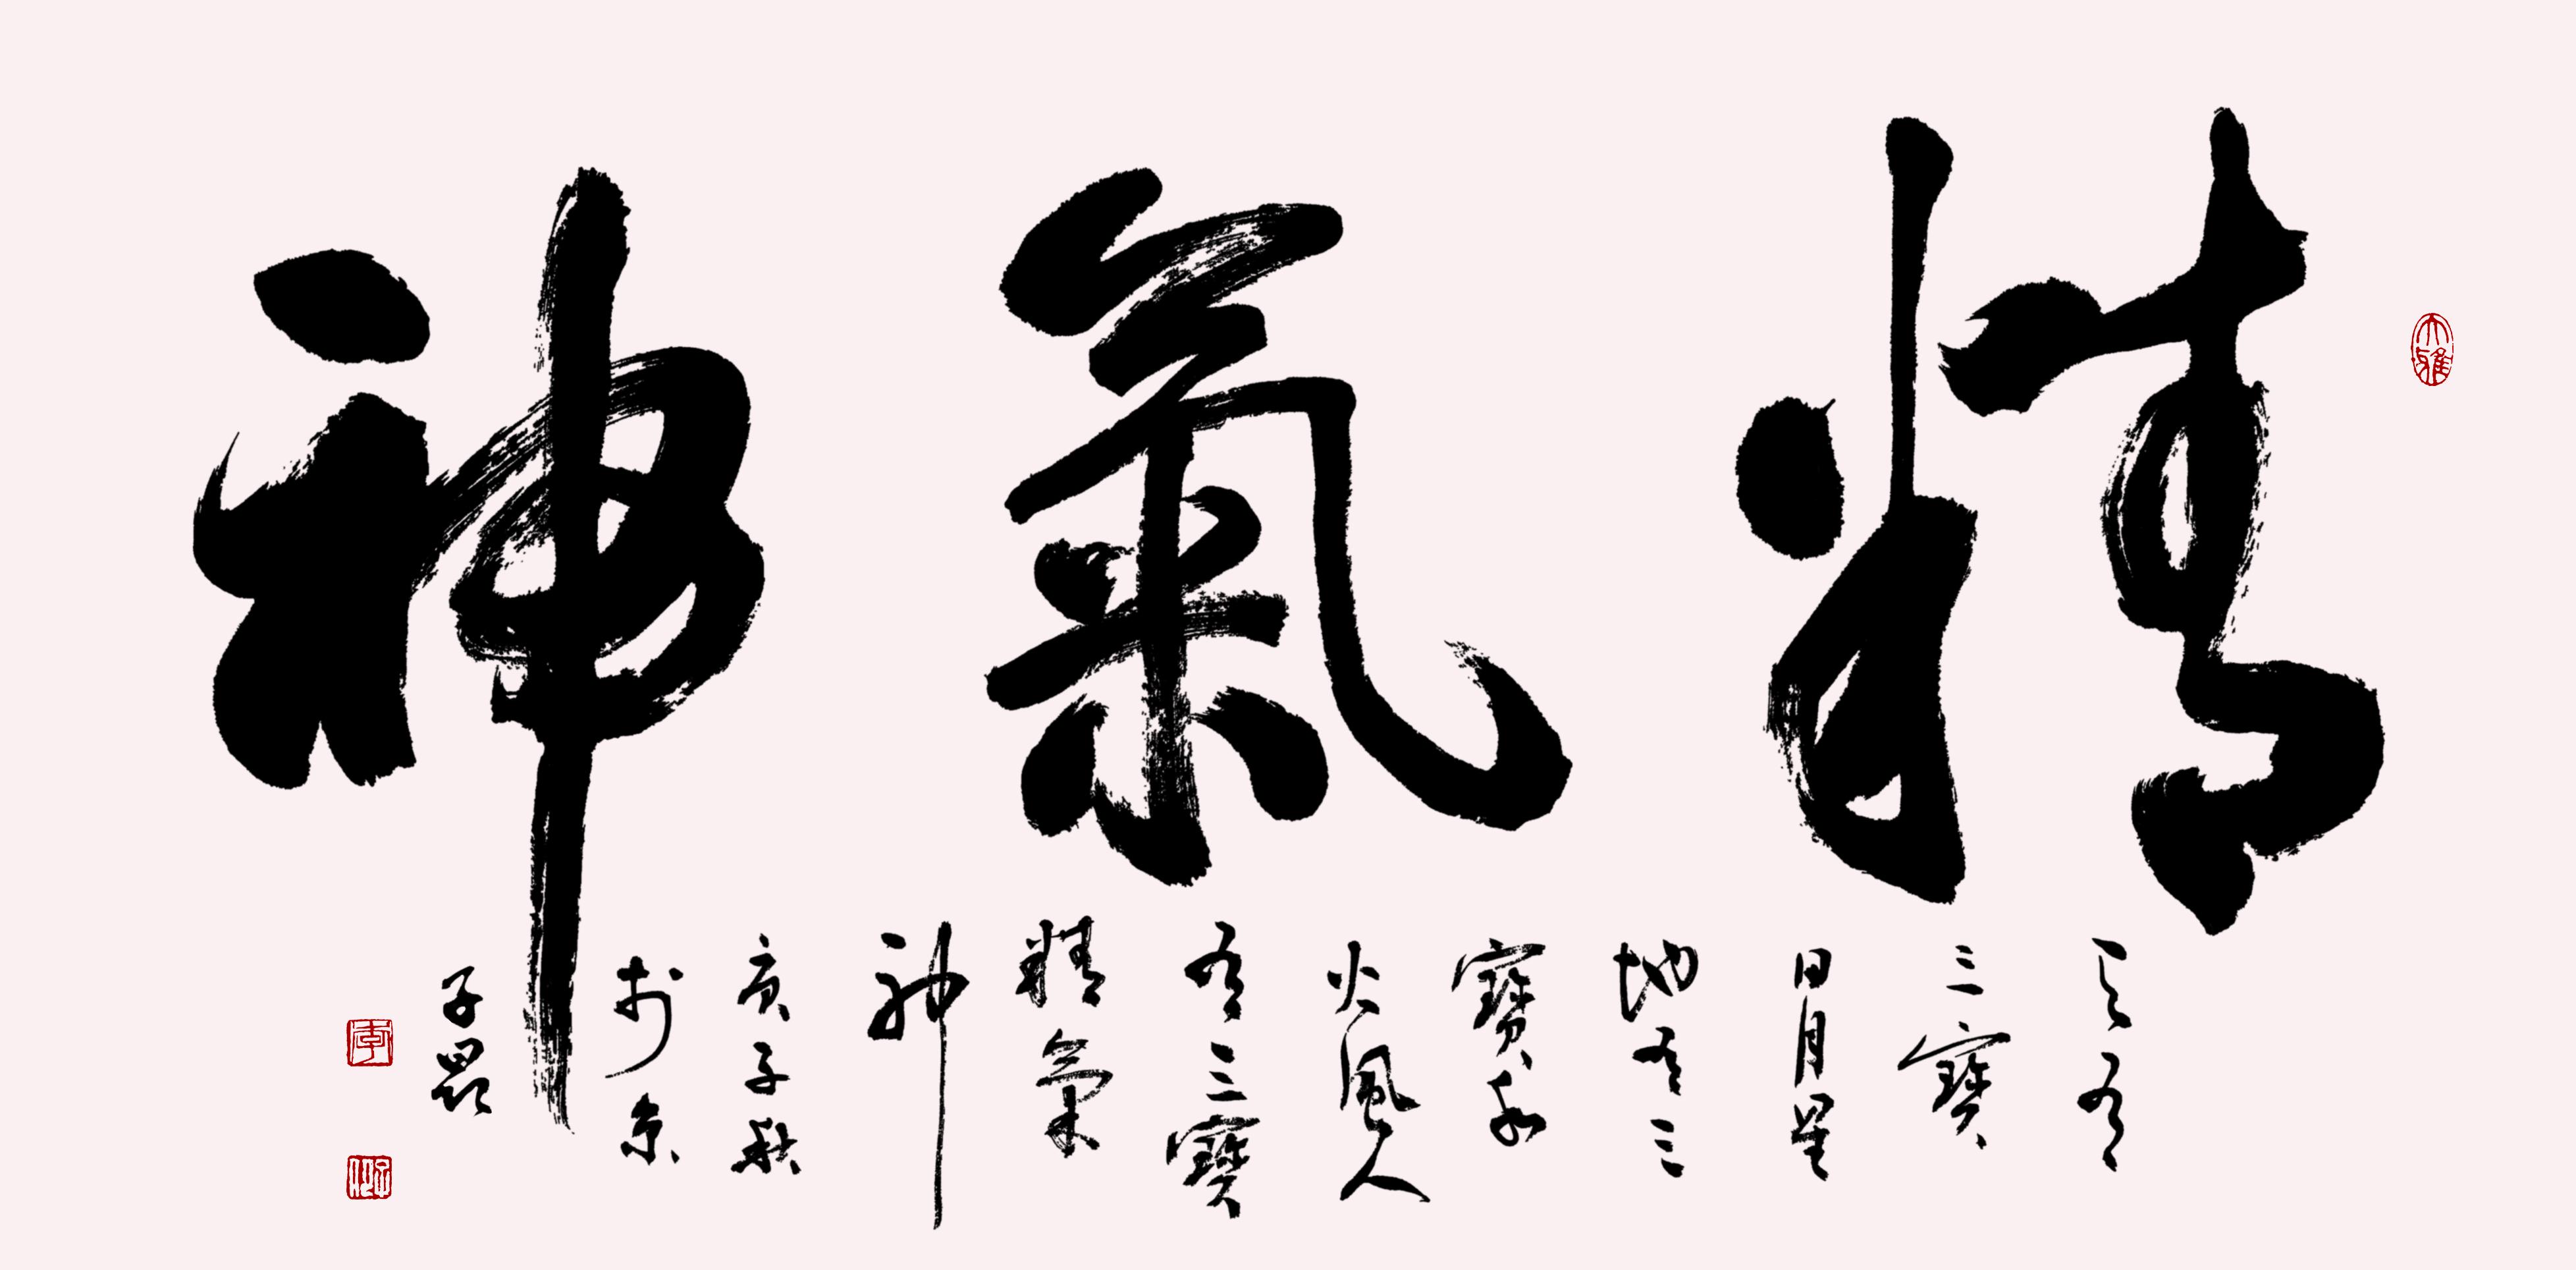 精氣神
天有
三寶
日月星
地有三
寶水
火風人
有三寶
精氣
神
庚子秋
於京
子
大雅
李